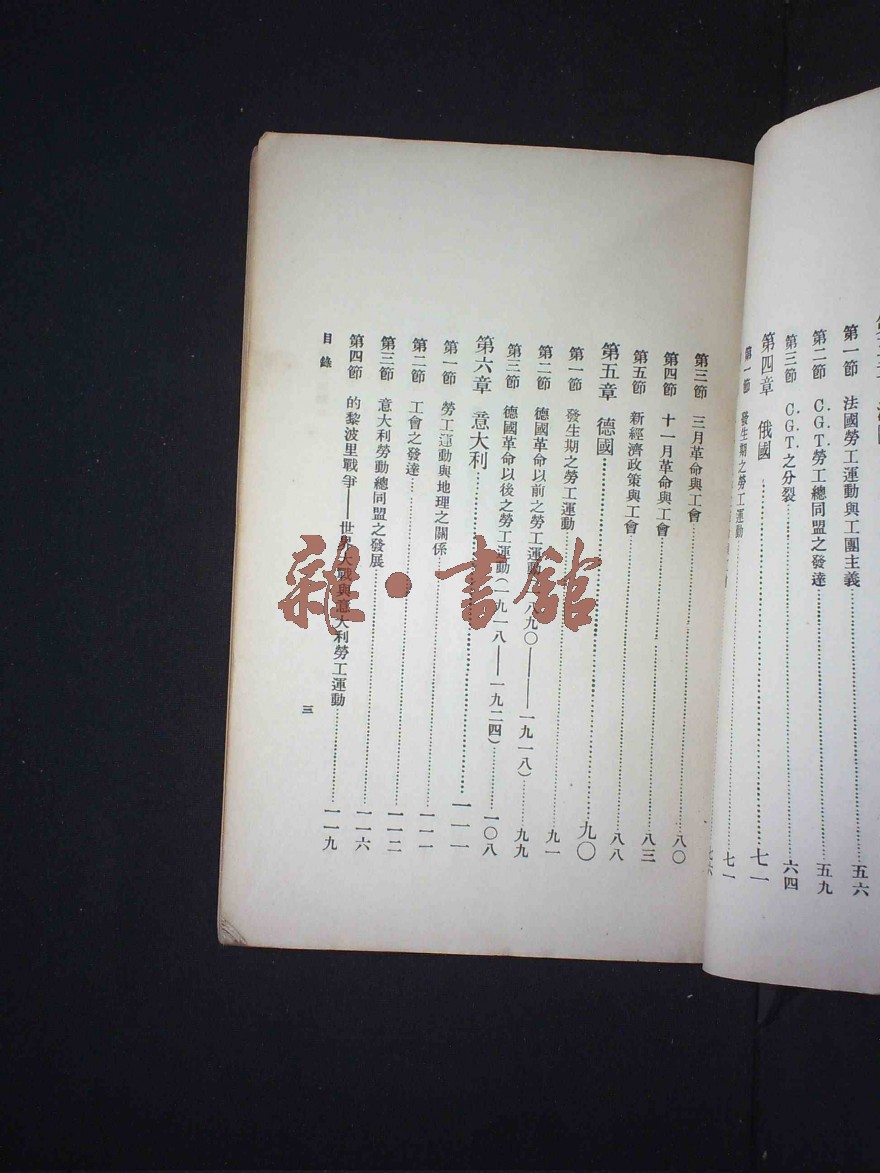 第一節 法國勞工運動與工團主義 五六
第二節 C.G.T.勞工總同盟之發達 五九
第三節 C.G.T.之分裂 六四
第四章 俄國 七一
第一節 發生期之勞工運動 七一
七六
第三節 三月革命與工會 八〇
第四節 十一月革命與工會 八三
第五節 新經濟政策與工會 八八
第五章 德國 九〇
第一節 發生期之勞工運動 九一
第二節 德國革命以前之勞工運動(一八九〇——一九一八) 九九
第三節 德國革命以後之勞工運動(一九一八——一九二四) 一〇八
第六章 意大利 一一一
第一節 勞工運動與地理之關係 一一一
第二節 工會之發達 一一二
第三節 意大利勞動總同盟之發展 一一六
第四節 的黎波里戰爭——世界大戰與意大利勞工運動 一一九
目錄 三
雜·書館